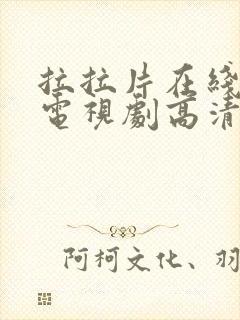 拉拉片在綫
電視劇高清
阿柯文化、羽